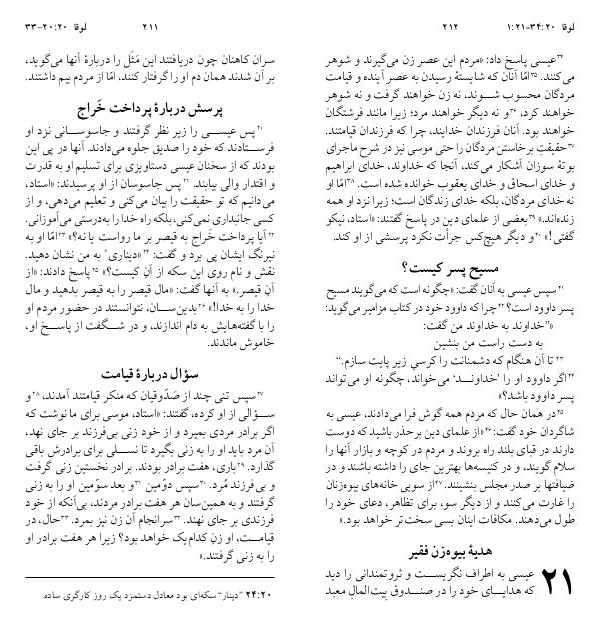 لوقا ۲۰:۲۰-۳۳ ۲۱۱
سران کاهنان چون دریافتند این مَثَل را دربارهٔ آنها می‌گوید،
بر آن شدند همان دم او را گرفتار کنند، امّا از مردم بیم داشتند.
پرسش دربارهٔ پرداخت خَراج
۲۰پس عیسی را زیر نظر گرفتند و جاسوسانی نزد او
فرستادند که خود را صدیق جلوه می‌دادند. آنها در پی این
بودند که از سخنان عیسی دستاویزی برای تسلیم او به قدرت
و اقتدار والی بیابند. ۲۱پس جاسوسان از او پرسیدند: «استاد،
می‌دانیم که تو حقیقت را بیان می‌کنی و تعلیم می‌دهی، و از
کسی جانبداری نمی‌کنی، بلکه راه خدا را به‌درستی می‌آموزانی.
۲۲آیا پرداخت خَراج به قیصر بر ما رواست یا نه؟» ۲۳امّا او به
نیرنگ ایشان پی برد و گفت: ۲۴«دیناری* به من نشان دهید.
نقش و نام روی این سکه از آنِ کیست؟» ۲۵پاسخ دادند: «از
آنِ قیصر.» به آنها گفت: «مال قیصر را به قیصر بدهید و مال
خدا را به خدا!» ۲۶بدین‌سان، نتوانستند در حضور مردم او
را با گفته‌هایش به دام اندازند، و در شگفت از پاسخ او،
خاموش ماندند.
سؤال دربارهٔ قیامت
۲۷سپس تنی چند از صَدّوقیان که منکر قیامتند آمدند، ۲۸و
سؤالی از او کرده، گفتند: «استاد، موسی برای ما نوشت که
اگر برادر مردی بمیرد و از خود زنی بی‌فرزند بر جای نهد،
آن مرد باید او را به زنی بگیرد تا نسلی برای برادرش باقی
گذارد. ۲۹باری، هفت برادر بودند. برادر نخستین زنی گرفت
و بی‌فرزند مُرد. ۳۰سپس دوّمین ۳۱و بعد سوّمین او را به زنی
گرفتند و به همین‌سان هر هفت برادر مردند، بی‌آنکه از خود
فرزندی بر جای نهند. ۳۲سرانجام آن زن نیز بمرد. ۳۳حال، در
قیامت، او زنِ کدام‌یک خواهد بود؟ زیرا هر هفت برادر او
را به زنی گرفتند.»
۲۴:۲۰ ”دینار“ سکه‌ای بود معادل دستمزد یک روز کارگری ساده.
لوقا ۲۰:۳۴-۲۱:۱ ۲۱۲
۳۴عیسی پاسخ داد: «مردم این عصر زن می‌گیرند و شوهر
می‌کنند. ۳۵امّا آنان که شایستهٔ رسیدن به عصر آینده و قیامت
مردگان محسوب شوند، نه زن خواهند گرفت و نه شوهر
خواهند کرد، ۳۶و نه دیگر خواهند مرد؛ زیرا مانند فرشتگان
خواهند بود. آنان فرزندان خدایند، چرا که فرزندان قیامتند.
۳۷حقیقتِ برخاستن مردگان را حتی موسی نیز در شرح ماجرای
بوتهٔ سوزان آشکار می‌کند، آنجا که خداوند، خدای ابراهیم
و خدای اسحاق و خدای یعقوب خوانده شده است. ۳۸امّا او
نه خدای مردگان، بلکه خدای زندگان است؛ زیرا نزد او همه
زنده‌اند.» ۳۹بعضی از علمای دین در پاسخ گفتند: «استاد، نیکو
گفتی!» ۴۰و دیگر هیچ‌کس جرأت نکرد پرسشی از او کند.
مسیح پسر کیست؟
۴۱سپس عیسی به آنان گفت: «چگونه است که می‌گویند مسیح
پسر داوود است؟ ۴۲چرا که داوود خود در کتاب مزامیر می‌گوید:
«”خداوند به خداوند من گفت:
به دست راست من بنشین
۴۳تا آن هنگام که دشمنانت را کرسیِ زیر پایت سازم.“
۴۴اگر داوود او را ’خداوند‘ می‌خواند، چگونه او می‌تواند
پسر داوود باشد؟»
۴۵در همان حال که مردم همه گوش فرا می‌دادند، عیسی به
شاگردان خود گفت: ۴۶«از علمای دین برحذر باشید که دوست
دارند در قبای بلند راه بروند و مردم در کوچه و بازار آنها را
سلام گویند، و در کنیسه‌ها بهترین جای را داشته باشند و در
ضیافتها بر صدر مجلس بنشینند. ۴۷از سویی خانه‌های بیوه‌زنان
را غارت می‌کنند و از دیگر سو، برای تظاهر، دعای خود را
طول می‌دهند. مکافات اینان بسی سخت‌تر خواهد بود.»
هدیهٔ بیوه‌زن فقیر
۲۱ عیسی به اطراف نگریست و ثروتمندانی را دید
که هدایای خود را در صندوق بیت‌المال معبد